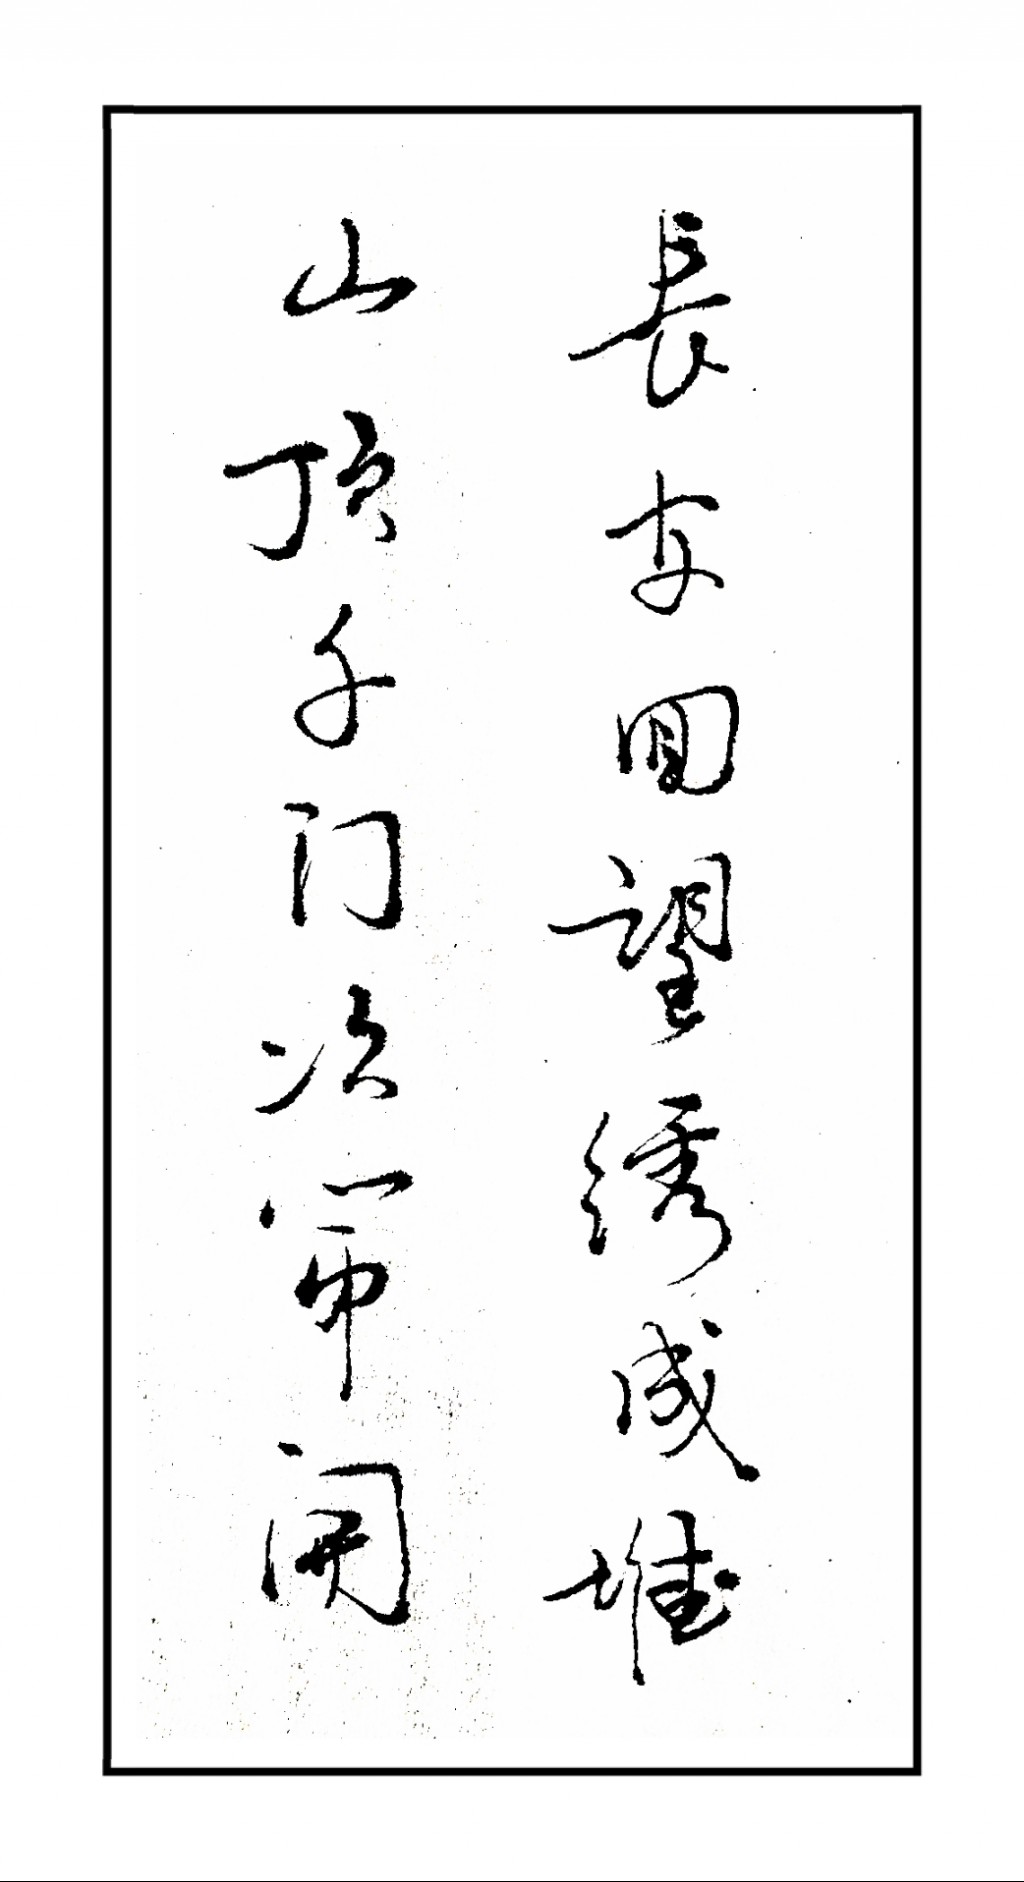 長安回望绣成堆
山顶千门次第開